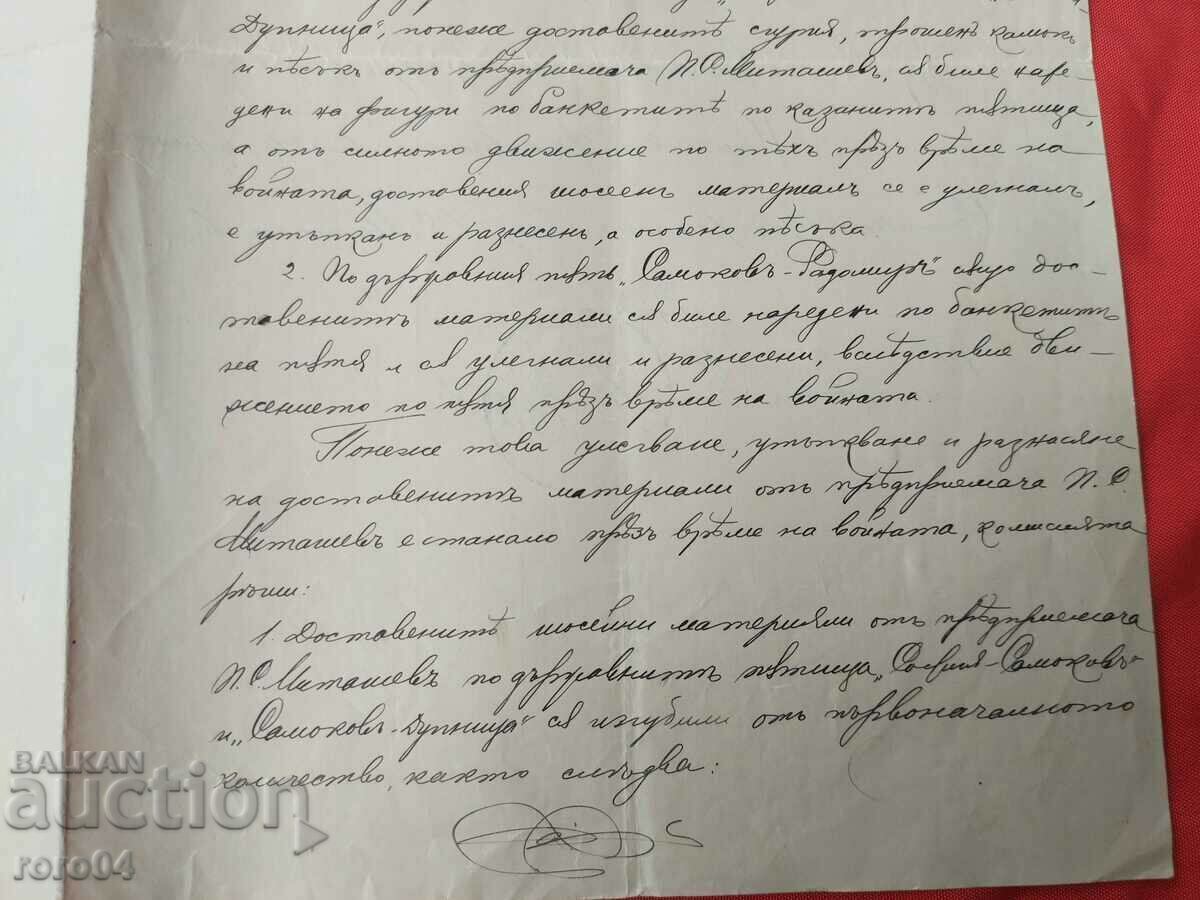 Дупница", понеже доставенитѣ сгурия, трошенъ камъкъ
и пѣсъкъ отъ прѣдприемача П.С. Миташевъ, сѫ биле наре-
дени на фигури по банкетитѣ по казанитѣ пѫтища,
а отъ силното движение по тѣхъ прѣзъ врѣме на
войната, доставения шосеенъ материалъ се е улегналъ,
е утъпканъ и разнесенъ, а особено пѣсъка.
2. По държавния пѫть „Самоковъ-Радомиръ" сѫщо дос-
тавенитѣ материали сѫ биле наредени по банкетитѣ
на пѫтя и сѫ улегнали и разнесени, вслѣдствие дви-
жението по пѫтя прѣзъ врѣме на войната.
Понеже това улягване, утъпкване и разнасяне
на доставенитѣ материали отъ прѣдприемача П.С.
Миташевъ е станало прѣзъ врѣме на войната, комисията
рѣши:
1. Доставенитѣ шосейни материяли отъ прѣдприемача
П.С. Миташевъ по държавнитѣ пѫтища „София-Самоковъ"
и „Самоковъ-Дупница" сѫ изгубили отъ първоначалното
количество, както слѣдва:
BALKAN
auction
roro04